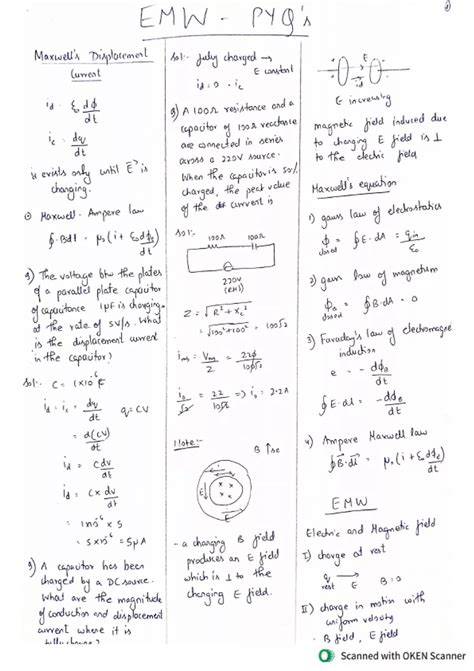 EMW - PYQ's
Maxwell's Displacement
Current
id = ε₀ dϕ/dt
ic = dq/dt
is exists only until E is
changing.
Maxwell - Ampere law
∮B·dl = μ₀(i + ε₀ dϕE/dt)
Q) The voltage btw the plates
of a parallel plate capacitor
of capacitance 1μF is charging
at the rate of 5V/s. What
is the displacement current
in the capacitor?
Sol:- C = 1×10⁻⁶ F
id = ic = dq/dt q=CV
= d(CV)/dt
id = C dV/dt
id = C × dV/dt
= 1×10⁻⁶ × 5
= 5×10⁻⁶ = 5μA
Q) A capacitor has been
charged by a DC source.
What are the magnitude
of conduction and displacement
current where it is
fully charged?
Sol:- fully charged →
E constant
id = 0 = ic
Q) A 100Ω resistance and a
capacitor of 100Ω reactance
are connected in series
across a 220V source.
When the capacitor is 50%
charged, the peak value
of the current is
Sol:-
100Ω 100Ω
220V
(RMS)
Z = √R² + Xc²
= √100²+100² = 100√2
= 22/10√2 ⇒ i₀ = 2.2A
Note:-
B ↑se
E
- a changing B field
produces an E field
which is ⊥ to the
changing E field.
E
E increasing
magnetic field induced due
to changing E field is ⊥
to the electric field
Maxwell's equation
1) gauss law of electrostatics
ϕ closed = ∮E·dA = qin/ε₀
2) gauss law of magnetism
ϕB closed = ∮B·dA = 0
3) Faraday's law of electromagnetic
induction
e = - dϕB/dt
∮E·dl = - dϕB/dt
4) Ampere Maxwell law
∮B·dl = μ₀(i + ε₀ dϕE/dt)
EMW
Electric and Magnetic field
I) charge at rest
q rest → E B=0
II) charge in motion with
uniform velocity
B field, E field
Scanned with OKEN Scanner